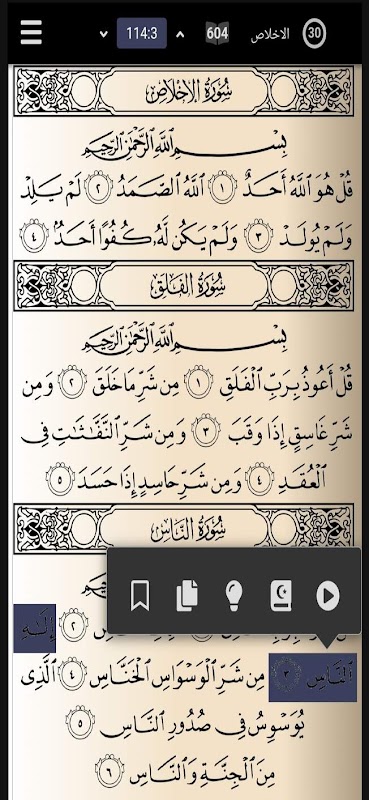 30 الاخلاص 604 114:3
سُورَةُ الإِخْلَاصِ
بِسْمِ ٱللَّهِ ٱلرَّحْمَٰنِ ٱلرَّحِيمِ
قُلْ هُوَ ٱللَّهُ أَحَدٌ ١ ٱللَّهُ ٱلصَّمَدُ ٢ لَمْ يَلِدْ
وَلَمْ يُولَدْ ٣ وَلَمْ يَكُن لَّهُۥ كُفُوًا أَحَدٌۢ ٤
سُورَةُ الفَلَقِ
بِسْمِ ٱللَّهِ ٱلرَّحْمَٰنِ ٱلرَّحِيمِ
قُلْ أَعُوذُ بِرَبِّ ٱلْفَلَقِ ١ مِن شَرِّ مَا خَلَقَ ٢ وَمِن
شَرِّ غَاسِقٍ إِذَا وَقَبَ ٣ وَمِن شَرِّ ٱلنَّفَّٰثَٰتِ فِى
ٱلْعُقَدِ ٤ وَمِن شَرِّ حَاسِدٍ إِذَا حَسَدَ ٥
سُورَةُ النَّاسِ
٢ إِلَٰهِ
ٱلنَّاسِ ٣ مِن شَرِّ ٱلْوَسْوَاسِ ٱلْخَنَّاسِ ٤ ٱلَّذِى
يُوَسْوِسُ فِى صُدُورِ ٱلنَّاسِ ٥
مِنَ ٱلْجِنَّةِ وَٱلنَّاسِ ٦